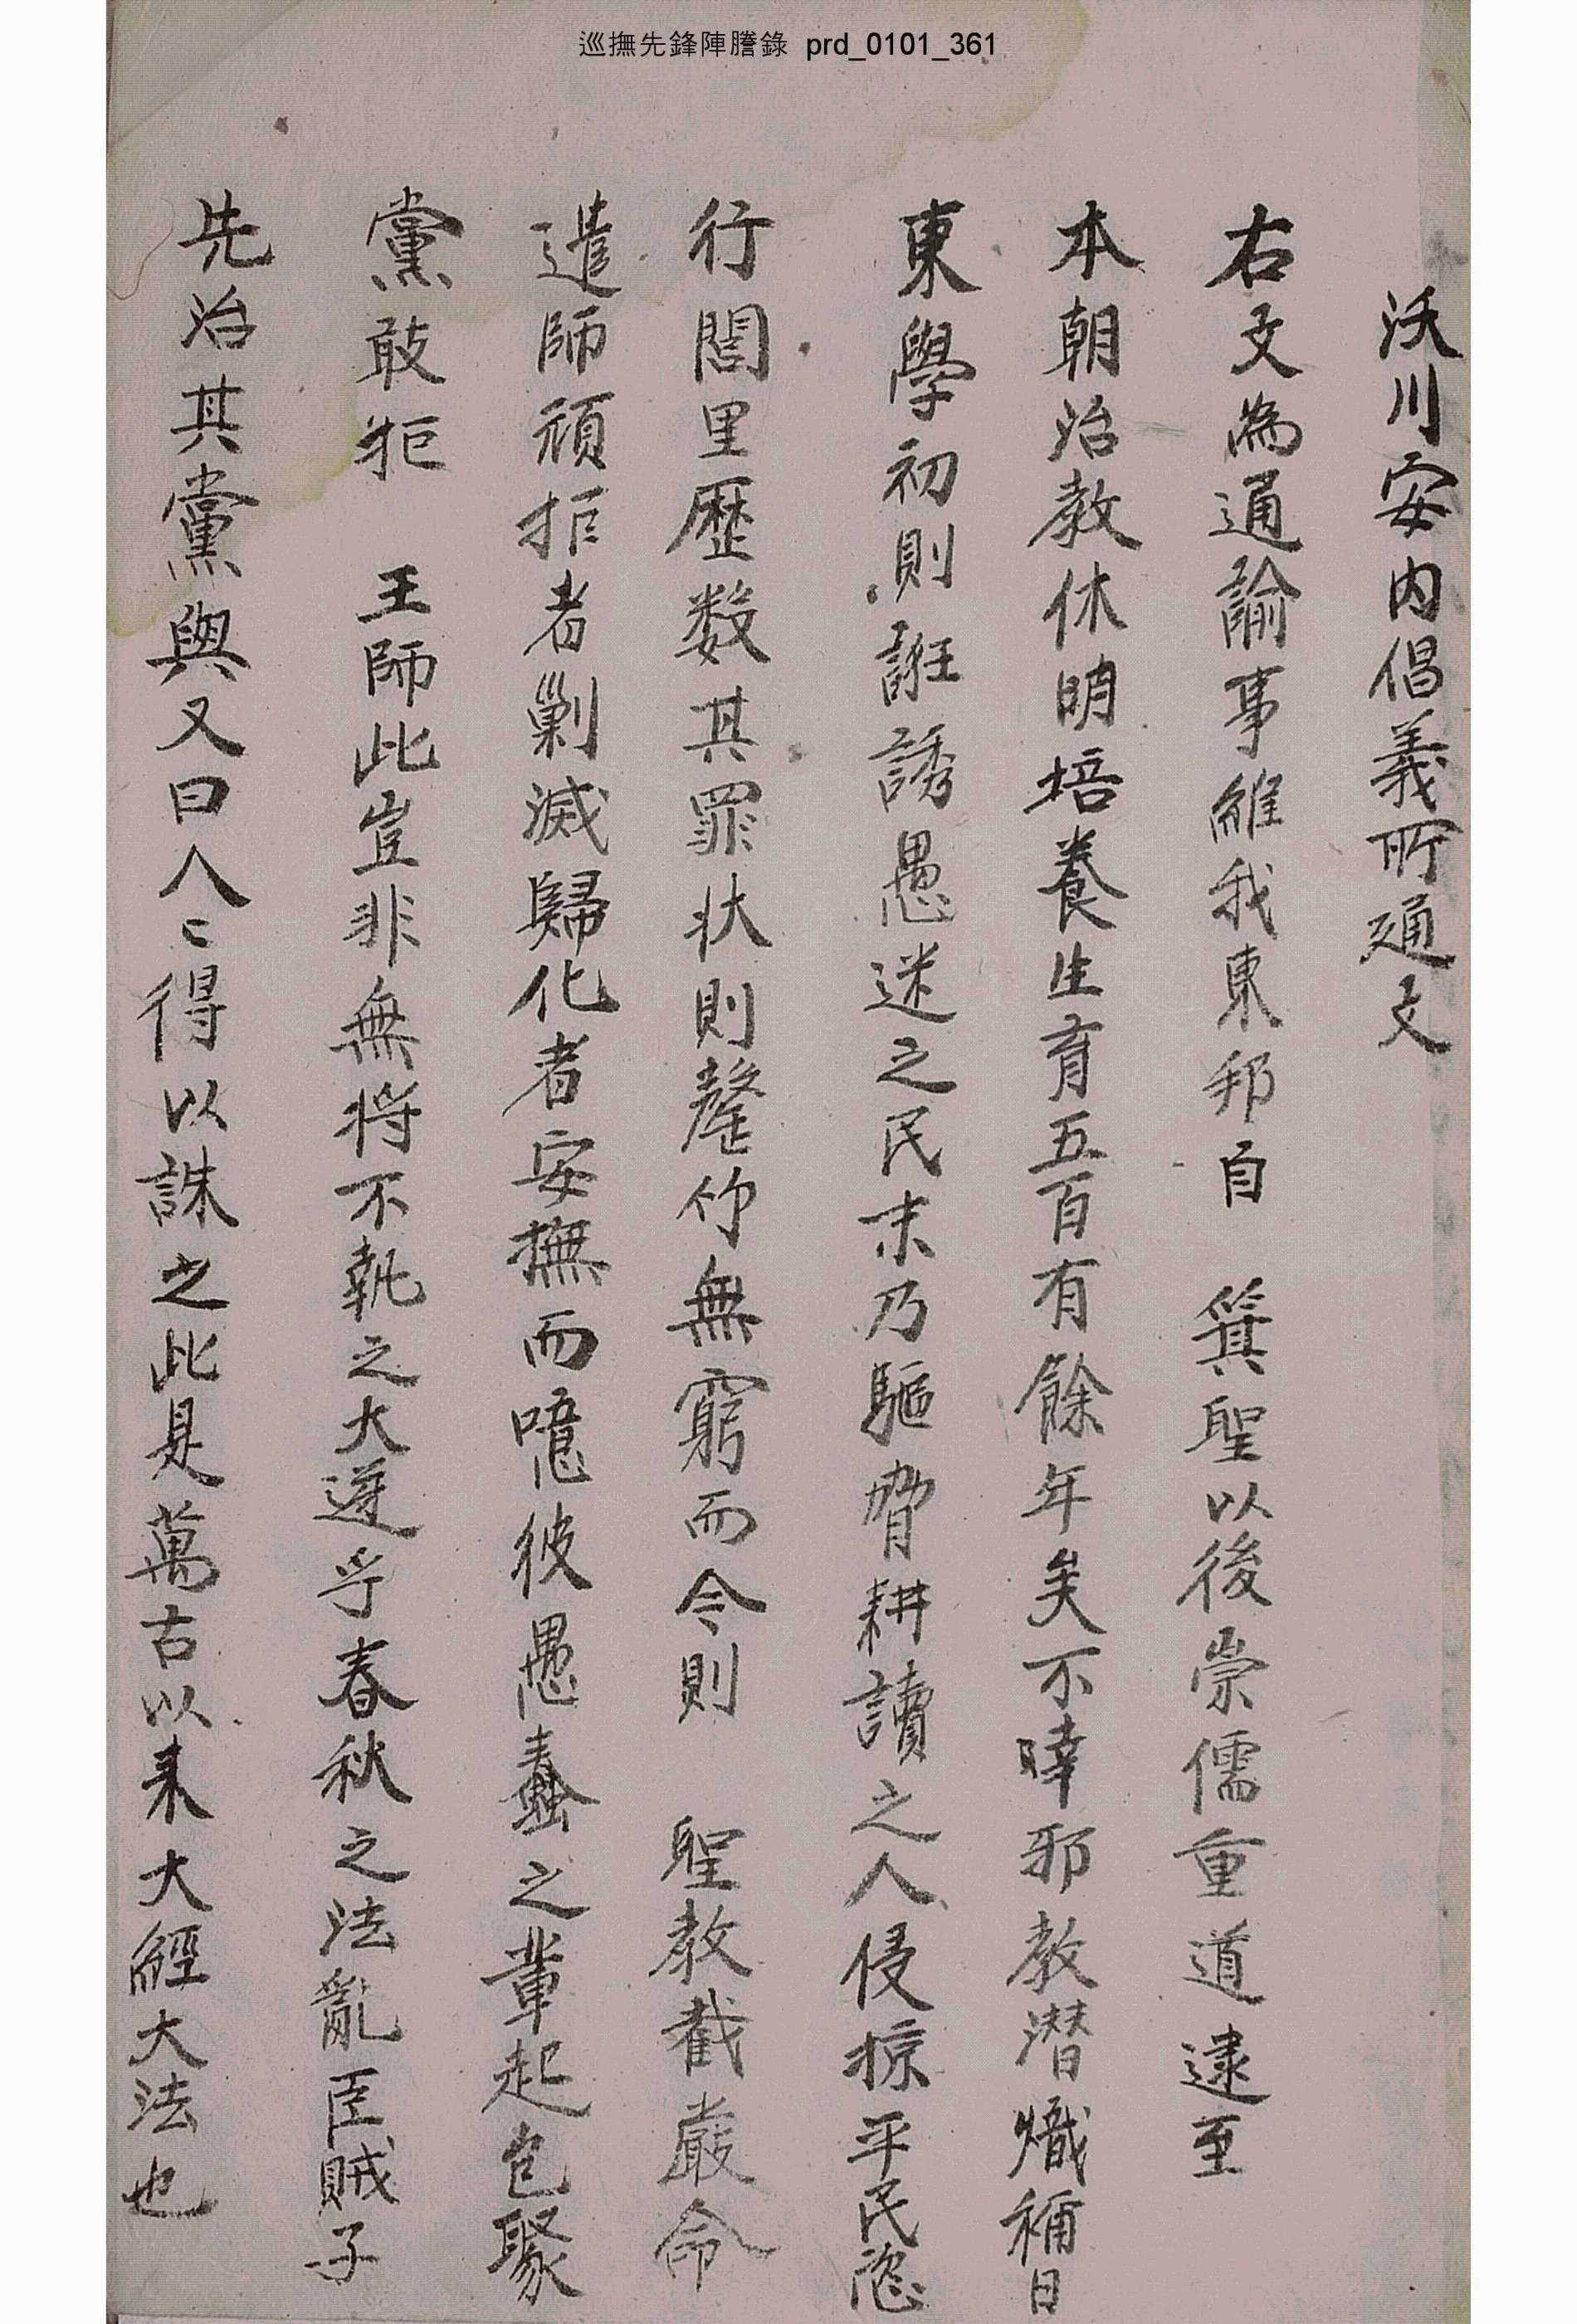 巡撫先鋒陣謄錄 prd_0101_361
沃川安内倡義所通文
右文為通諭事維我東邦自 箕聖以後崇儒重道逮至
本朝治教休明培養生育五百有餘年矣不幸邪教潜熾稱曰
東學初則誑誘愚迷之民末乃驅脅耕讀之人侵掠平民恣
行閭里歷数其罪状則罄竹無窮而今則 聖教截嚴命
遣師頑拒者剿滅歸化者安撫而噫彼愚蠢之輩起包聚
黨敢拒 王師此豈非無将不軌之大逆乎春秋之法亂臣賊子
先治其黨與又曰人〻得以誅之此是萬古以来大經大法也